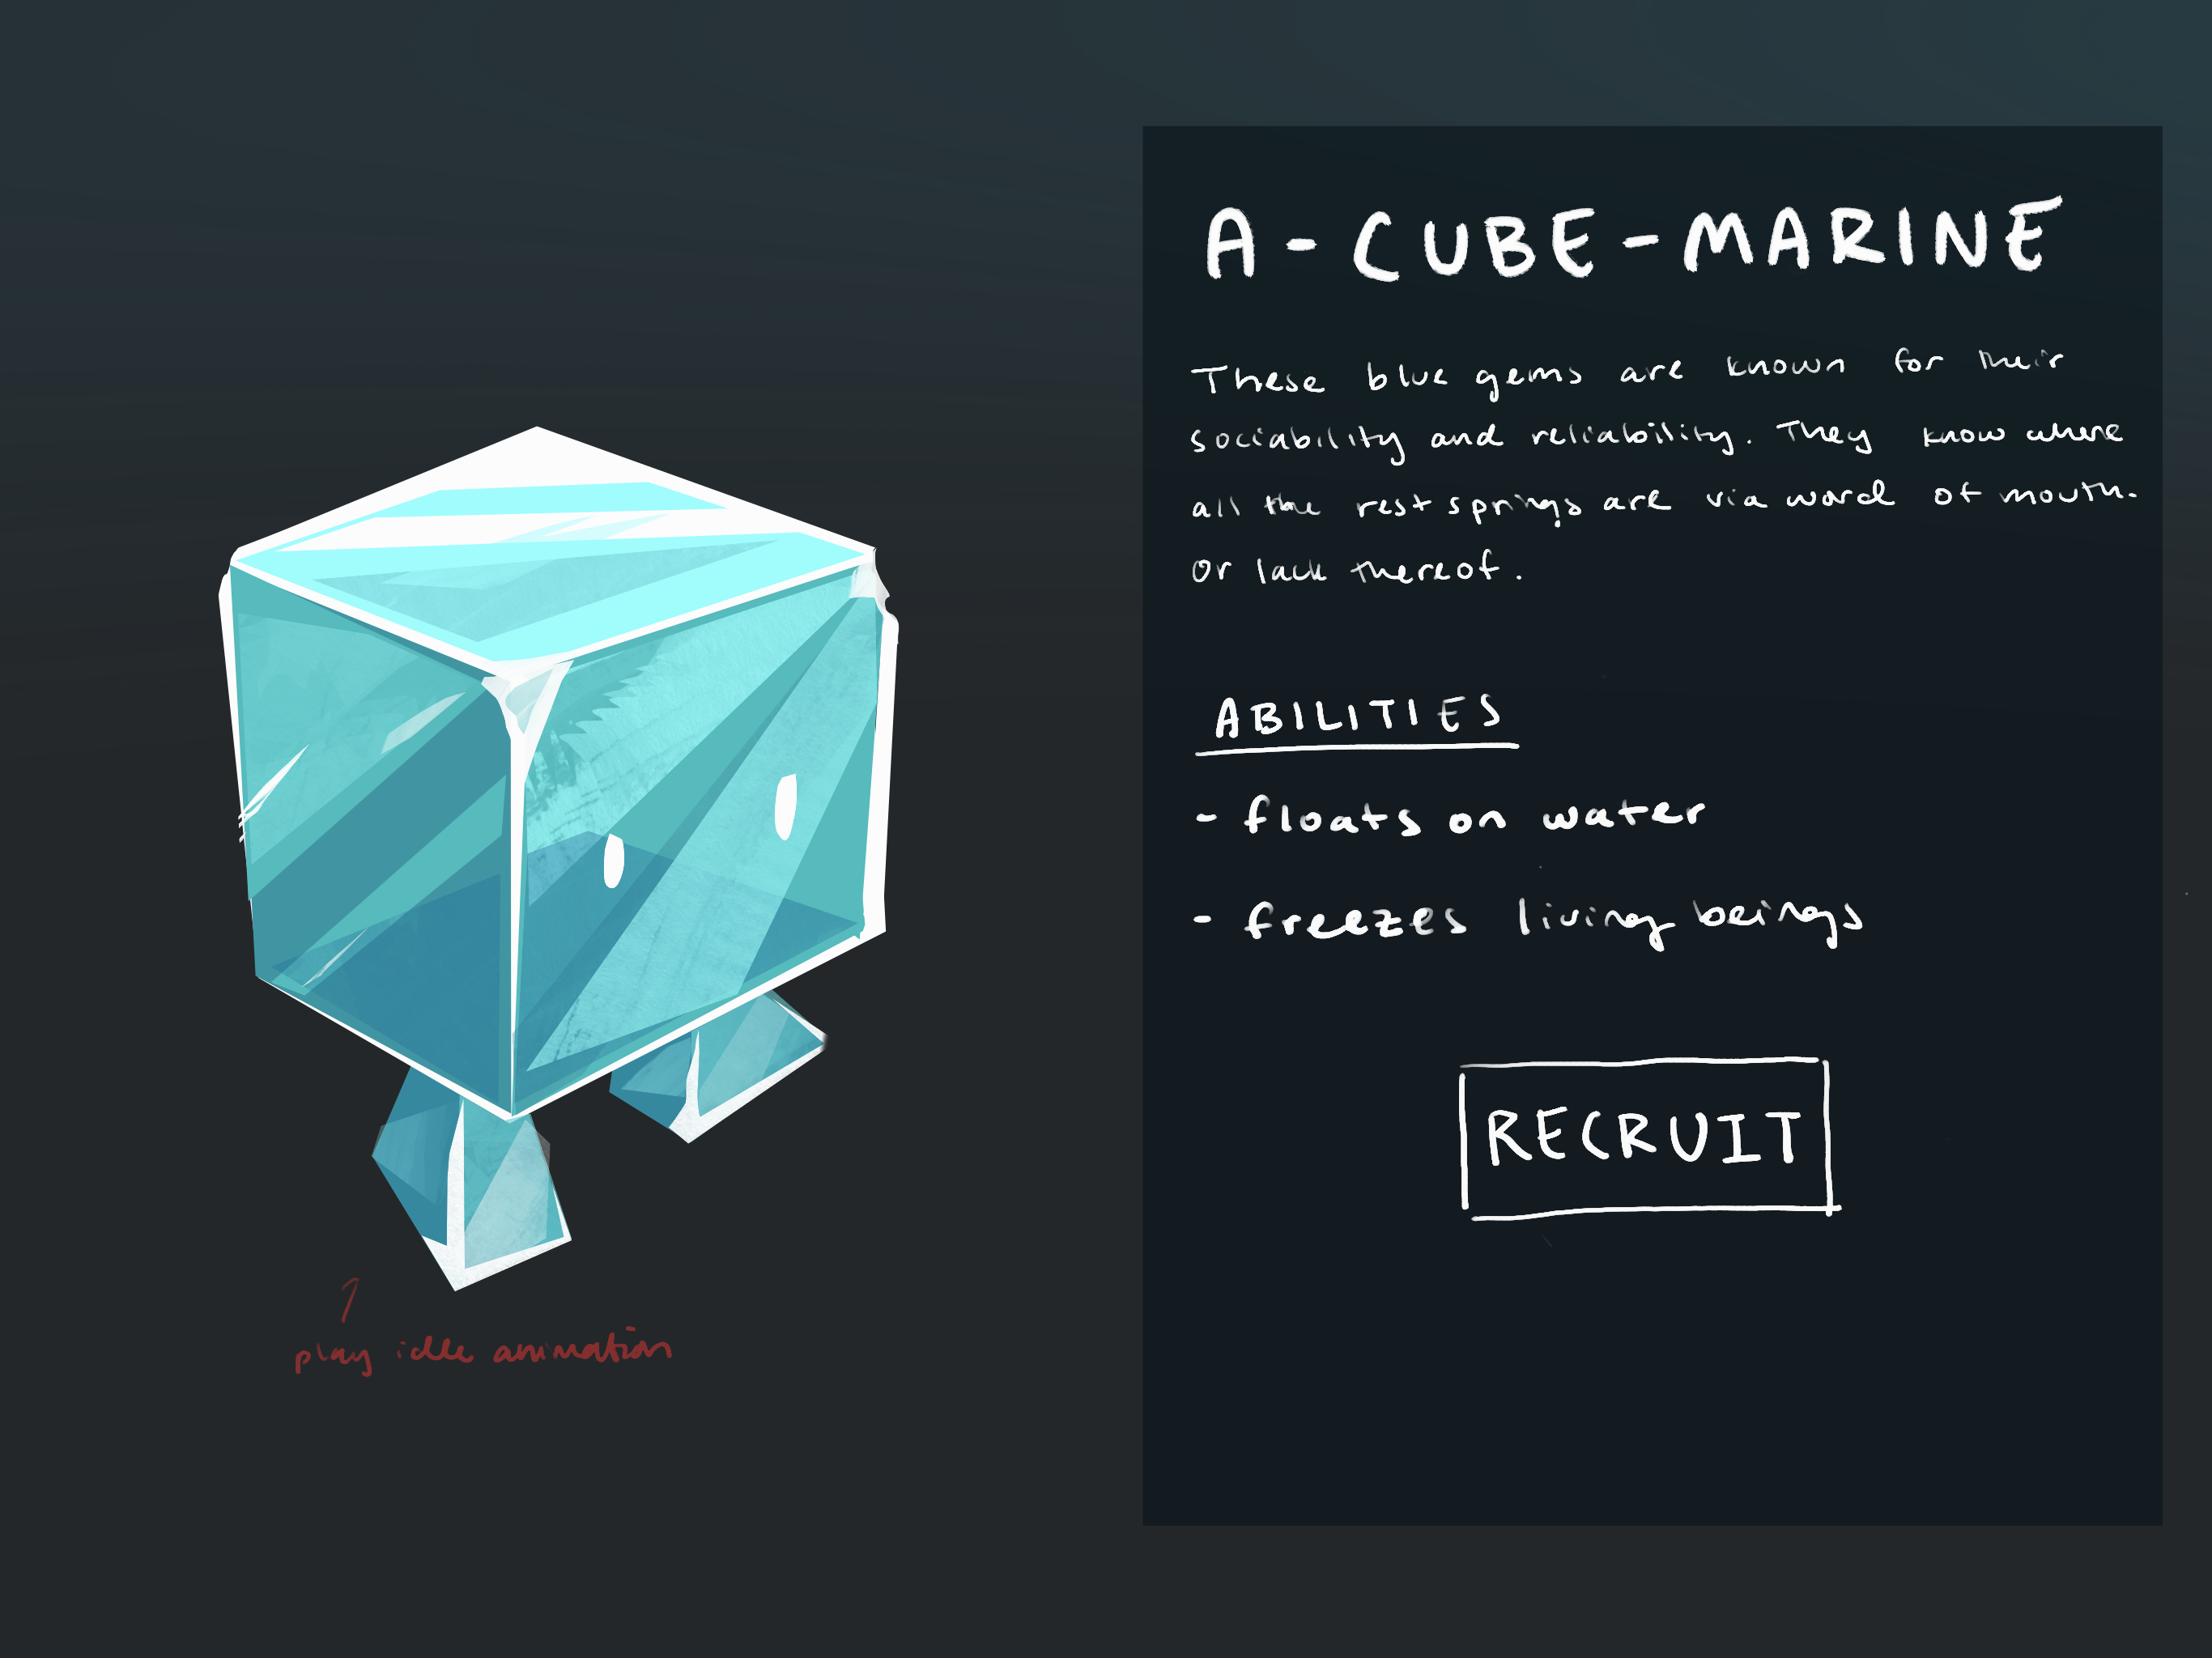 A-CUBE-MARINE
These blue gems are known for their
sociability and reliability. They know where
all the rest springs are via word of mouth.
Or lack thereof.
ABILITIES
- floats on water
- freezes living beings
RECRUIT
play idle animation